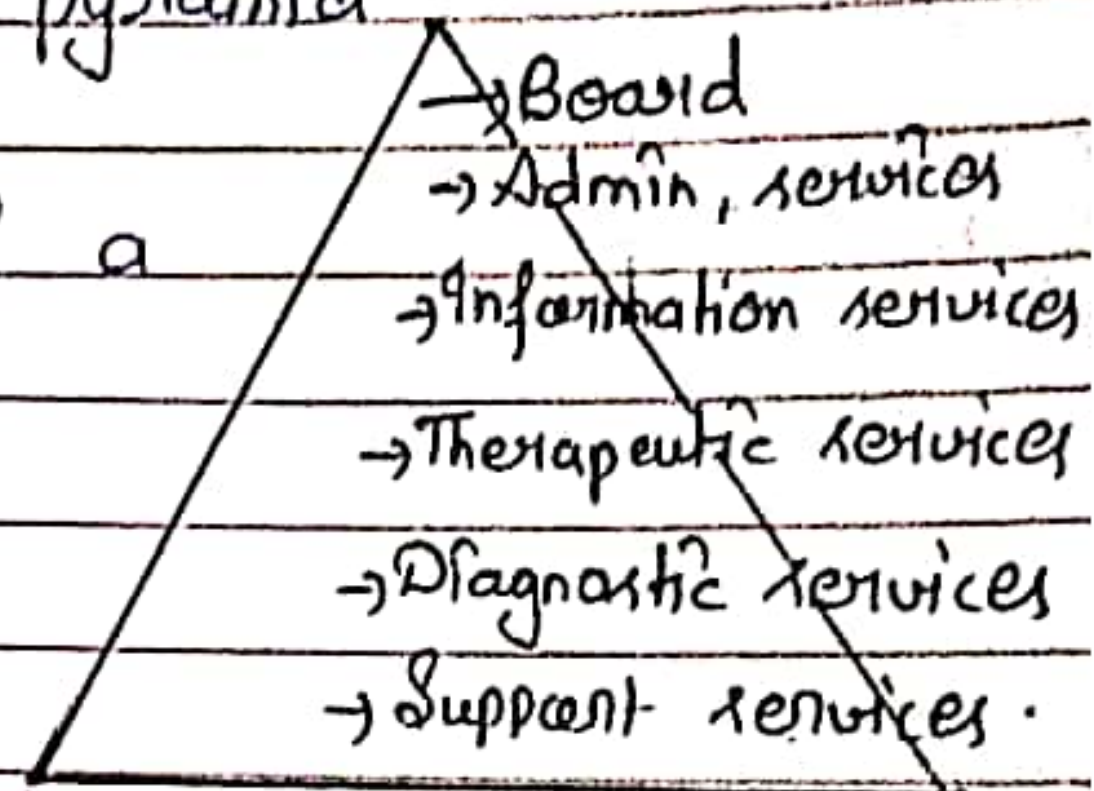 pyramid
→ Board
→ Admin, services
a
→ Information services
→ Therapeutic services
→ Diagnostic services
→ Support services.